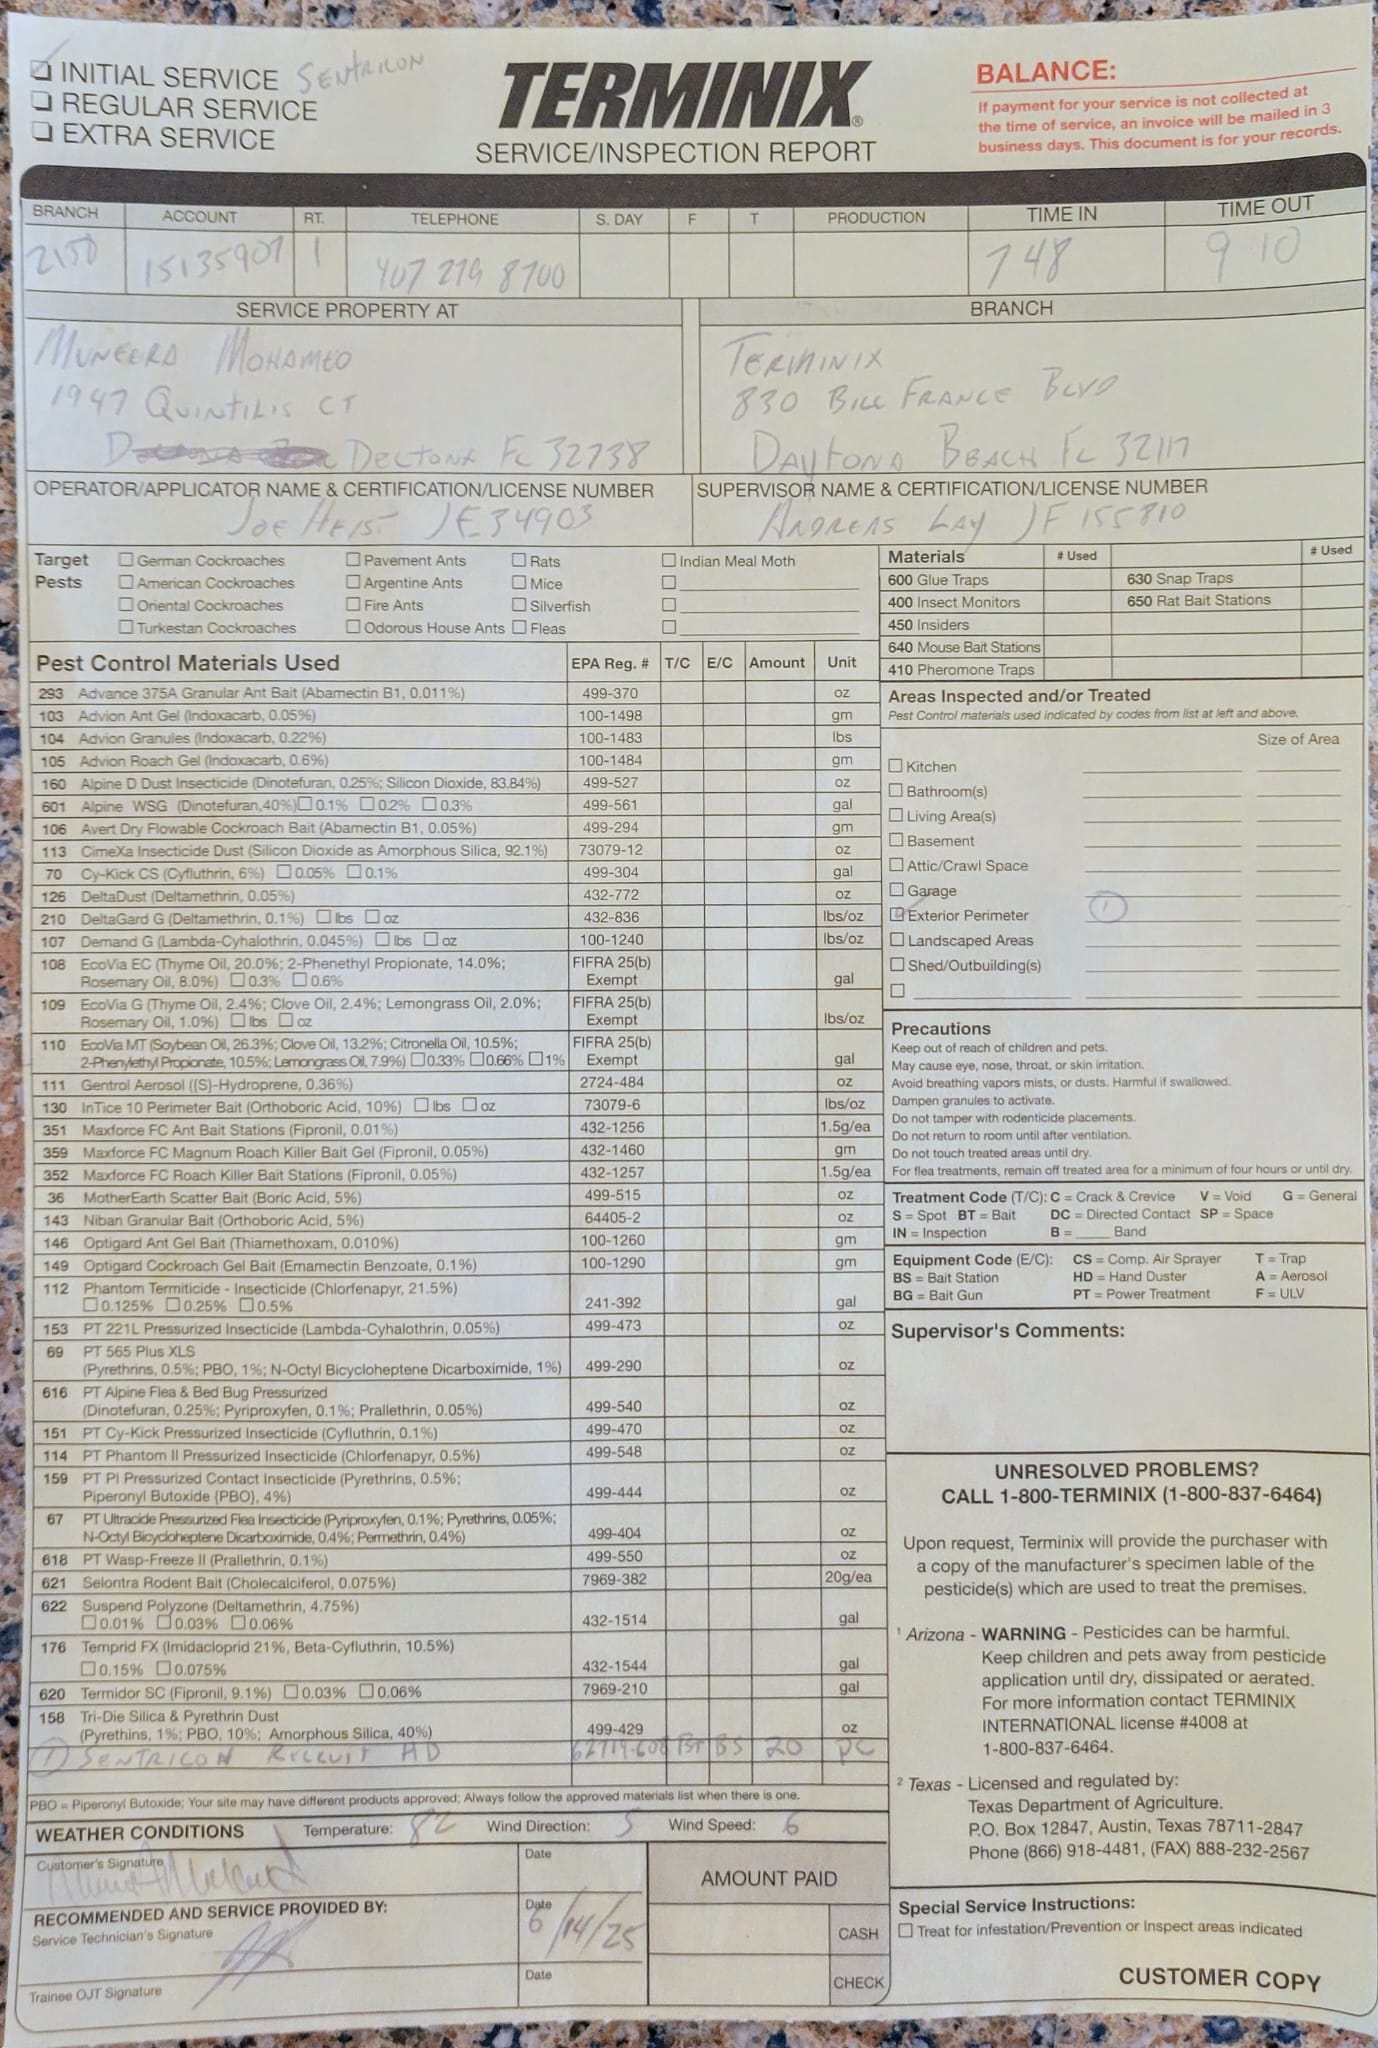 ☑ INITIAL SERVICE SENTRICON
☐ REGULAR SERVICE
☐ EXTRA SERVICE
TERMINIX®
SERVICE/INSPECTION REPORT
BALANCE:
If payment for your service is not collected at
the time of service, an invoice will be mailed in 3
business days. This document is for your records.
BRANCH ACCOUNT RT. TELEPHONE S. DAY F T PRODUCTION TIME IN TIME OUT
2150 15135907 1 407 279 8700 748 9 10
SERVICE PROPERTY AT
MUNEERA MOHAMED
1947 QUINTILIS CT
DELTONA FL 32738
BRANCH
TERMINIX
830 BILL FRANCE BLVD
DAYTONA BEACH FL 32117
OPERATOR/APPLICATOR NAME & CERTIFICATION/LICENSE NUMBER
JOE HEIST JE34903
SUPERVISOR NAME & CERTIFICATION/LICENSE NUMBER
ANDREAS LAY JF155810
Target Pests
☐ German Cockroaches ☐ Pavement Ants ☐ Rats ☐ Indian Meal Moth
☐ American Cockroaches ☐ Argentine Ants ☐ Mice ☐
☐ Oriental Cockroaches ☐ Fire Ants ☐ Silverfish ☐
☐ Turkestan Cockroaches ☐ Odorous House Ants ☐ Fleas ☐
Materials # Used # Used
600 Glue Traps 630 Snap Traps
400 Insect Monitors 650 Rat Bait Stations
450 Insiders
640 Mouse Bait Stations
410 Pheromone Traps
Pest Control Materials Used EPA Reg. # T/C E/C Amount Unit
293 Advance 375A Granular Ant Bait (Abamectin B1, 0.011%) 499-370 oz
103 Advion Ant Gel (Indoxacarb, 0.05%) 100-1498 gm
104 Advion Granules (Indoxacarb, 0.22%) 100-1483 lbs
105 Advion Roach Gel (Indoxacarb, 0.6%) 100-1484 gm
160 Alpine D Dust Insecticide (Dinotefuran, 0.25%; Silicon Dioxide, 83.84%) 499-527 oz
601 Alpine WSG (Dinotefuran,40%) ☐ 0.1% ☐ 0.2% ☐ 0.3% 499-561 gal
106 Avert Dry Flowable Cockroach Bait (Abamectin B1, 0.05%) 499-294 gm
113 CimeXa Insecticide Dust (Silicon Dioxide as Amorphous Silica, 92.1%) 73079-12 oz
70 Cy-Kick CS (Cyfluthrin, 6%) ☐ 0.05% ☐ 0.1% 499-304 gal
126 DeltaDust (Deltamethrin, 0.05%) 432-772 oz
210 DeltaGard G (Deltamethrin, 0.1%) ☐ lbs ☐ oz 432-836 lbs/oz
107 Demand G (Lambda-Cyhalothrin, 0.045%) ☐ lbs ☐ oz 100-1240 lbs/oz
108 EcoVia EC (Thyme Oil, 20.0%; 2-Phenethyl Propionate, 14.0%;
Rosemary Oil, 8.0%) ☐ 0.3% ☐ 0.6% FIFRA 25(b) Exempt gal
109 EcoVia G (Thyme Oil, 2.4%; Clove Oil, 2.4%; Lemongrass Oil, 2.0%;
Rosemary Oil, 1.0%) ☐ lbs ☐ oz FIFRA 25(b) Exempt lbs/oz
110 EcoVia MT (Soybean Oil, 26.3%; Clove Oil, 13.2%; Citronella Oil, 10.5%;
2-Phenylethyl Propionate, 10.5%; Lemongrass Oil, 7.9%) ☐ 0.33% ☐ 0.66% ☐ 1% FIFRA 25(b) Exempt gal
111 Gentrol Aerosol ((S)-Hydroprene, 0.36%) 2724-484 oz
130 InTice 10 Perimeter Bait (Orthoboric Acid, 10%) ☐ lbs ☐ oz 73079-6 lbs/oz
351 Maxforce FC Ant Bait Stations (Fipronil, 0.01%) 432-1256 1.5g/ea
359 Maxforce FC Magnum Roach Killer Bait Gel (Fipronil, 0.05%) 432-1460 gm
352 Maxforce FC Roach Killer Bait Stations (Fipronil, 0.05%) 432-1257 1.5g/ea
36 MotherEarth Scatter Bait (Boric Acid, 5%) 499-515 oz
143 Niban Granular Bait (Orthoboric Acid, 5%) 64405-2 oz
146 Optigard Ant Gel Bait (Thiamethoxam, 0.010%) 100-1260 gm
149 Optigard Cockroach Gel Bait (Emamectin Benzoate, 0.1%) 100-1290 gm
112 Phantom Termiticide - Insecticide (Chlorfenapyr, 21.5%)
☐ 0.125% ☐ 0.25% ☐ 0.5% 241-392 gal
153 PT 221L Pressurized Insecticide (Lambda-Cyhalothrin, 0.05%) 499-473 oz
69 PT 565 Plus XLS
(Pyrethrins, 0.5%; PBO, 1%; N-Octyl Bicycloheptene Dicarboximide, 1%) 499-290 oz
616 PT Alpine Flea & Bed Bug Pressurized
(Dinotefuran, 0.25%; Pyriproxyfen, 0.1%; Prallethrin, 0.05%) 499-540 oz
151 PT Cy-Kick Pressurized Insecticide (Cyfluthrin, 0.1%) 499-470 oz
114 PT Phantom II Pressurized Insecticide (Chlorfenapyr, 0.5%) 499-548 oz
159 PT PI Pressurized Contact Insecticide (Pyrethrins, 0.5%;
Piperonyl Butoxide (PBO), 4%) 499-444 oz
67 PT Ultracide Pressurized Flea Insecticide (Pyriproxyfen, 0.1%; Pyrethrins, 0.05%;
N-Octyl Bicycloheptene Dicarboximide, 0.4%; Permethrin, 0.4%) 499-404 oz
618 PT Wasp-Freeze II (Prallethrin, 0.1%) 499-550 oz
621 Selontra Rodent Bait (Cholecalciferol, 0.075%) 7969-382 20g/ea
622 Suspend Polyzone (Deltamethrin, 4.75%)
☐ 0.01% ☐ 0.03% ☐ 0.06% 432-1514 gal
176 Temprid FX (Imidacloprid 21%, Beta-Cyfluthrin, 10.5%)
☐ 0.15% ☐ 0.075% 432-1544 gal
620 Termidor SC (Fipronil, 9.1%) ☐ 0.03% ☐ 0.06% 7969-210 gal
158 Tri-Die Silica & Pyrethrin Dust
(Pyrethins, 1%; PBO, 10%; Amorphous Silica, 40%) 499-429 oz
① SENTRICON RECRUIT HD 62719-608 BT BS 20 PC
PBO = Piperonyl Butoxide; Your site may have different products approved; Always follow the approved materials list when there is one.
WEATHER CONDITIONS Temperature: 82 Wind Direction: S Wind Speed: 6
Customer's Signature Date
RECOMMENDED AND SERVICE PROVIDED BY:
Service Technician's Signature Date 6/14/25
Trainee OJT Signature Date
AMOUNT PAID
CASH
CHECK
Areas Inspected and/or Treated
Pest Control materials used indicated by codes from list at left and above.
Size of Area
☐ Kitchen
☐ Bathroom(s)
☐ Living Area(s)
☐ Basement
☐ Attic/Crawl Space
☐ Garage
☑ Exterior Perimeter ①
☐ Landscaped Areas
☐ Shed/Outbuilding(s)
☐
Precautions
Keep out of reach of children and pets.
May cause eye, nose, throat, or skin irritation.
Avoid breathing vapors mists, or dusts. Harmful if swallowed.
Dampen granules to activate.
Do not tamper with rodenticide placements.
Do not return to room until after ventilation.
Do not touch treated areas until dry.
For flea treatments, remain off treated area for a minimum of four hours or until dry.
Treatment Code (T/C): C = Crack & Crevice V = Void G = General
S = Spot BT = Bait DC = Directed Contact SP = Space
IN = Inspection B = ____ Band
Equipment Code (E/C): CS = Comp. Air Sprayer T = Trap
BS = Bait Station HD = Hand Duster A = Aerosol
BG = Bait Gun PT = Power Treatment F = ULV
Supervisor's Comments:
UNRESOLVED PROBLEMS?
CALL 1-800-TERMINIX (1-800-837-6464)
Upon request, Terminix will provide the purchaser with
a copy of the manufacturer's specimen lable of the
pesticide(s) which are used to treat the premises.
¹ Arizona - WARNING - Pesticides can be harmful.
Keep children and pets away from pesticide
application until dry, dissipated or aerated.
For more information contact TERMINIX
INTERNATIONAL license #4008 at
1-800-837-6464.
² Texas - Licensed and regulated by:
Texas Department of Agriculture.
P.O. Box 12847, Austin, Texas 78711-2847
Phone (866) 918-4481, (FAX) 888-232-2567
Special Service Instructions:
☐ Treat for infestation/Prevention or Inspect areas indicated
CUSTOMER COPY